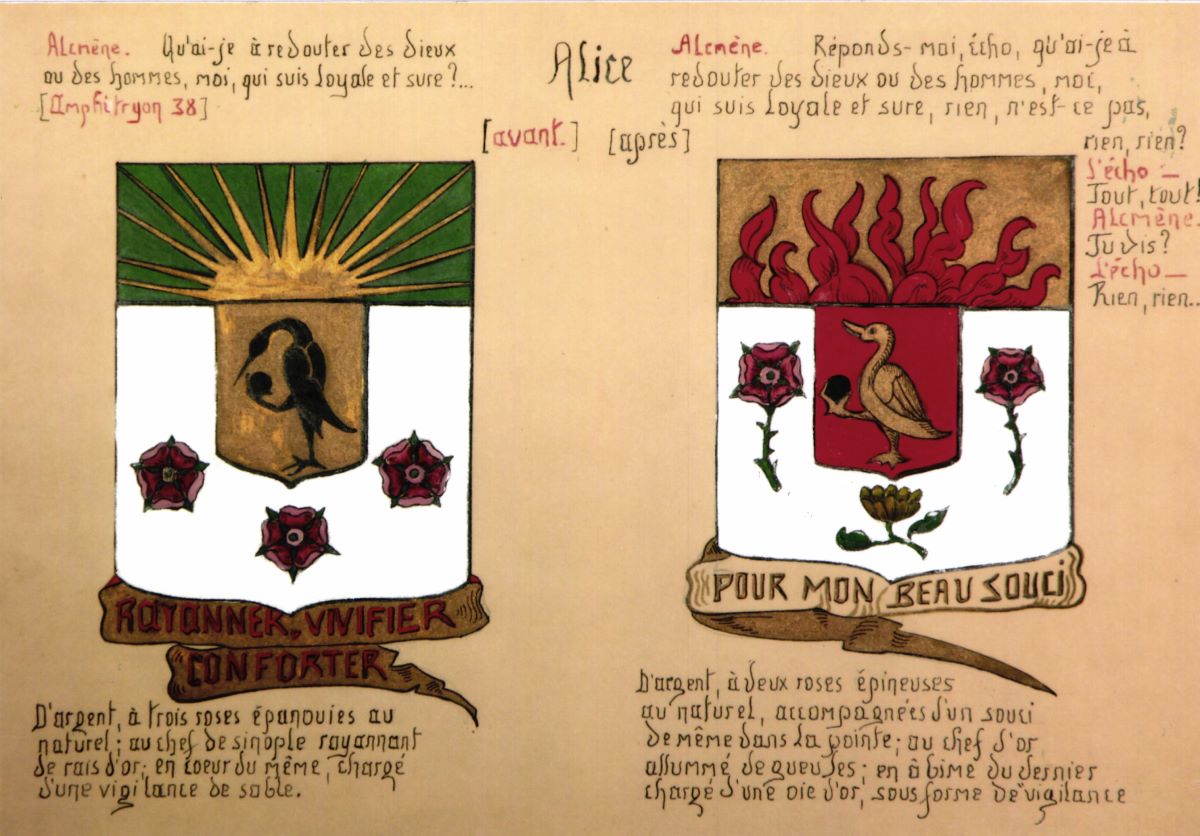 Alcmène. Qu'ai-je à redouter des dieux
ou des hommes, moi, qui suis loyale et sure?...
[Amphitryon 38]
Alice
[avant.] [après]
Alcmène. Réponds-moi, écho, qu'ai-je à
redouter des dieux ou des hommes, moi,
qui suis loyale et sure, rien, n'est-ce pas,
rien, rien?
L'écho —
Tout, tout!
Alcmène.
Tu dis?
L'écho —
Rien, rien...
RAYONNER, VIVIFIER
CONFORTER
D'argent, à trois roses épanouies au
naturel; au chef de sinople rayonnant
de rais d'or; en coeur du même, chargé
d'une vigilance de sable.
POUR MON BEAU SOUCI
D'argent, à deux roses épineuses
au naturel, accompagnées d'un souci
de même dans la pointe; au chef d'or
allummé de gueules; en abime du dernier
chargé d'une oie d'or, sous forme de vigilance